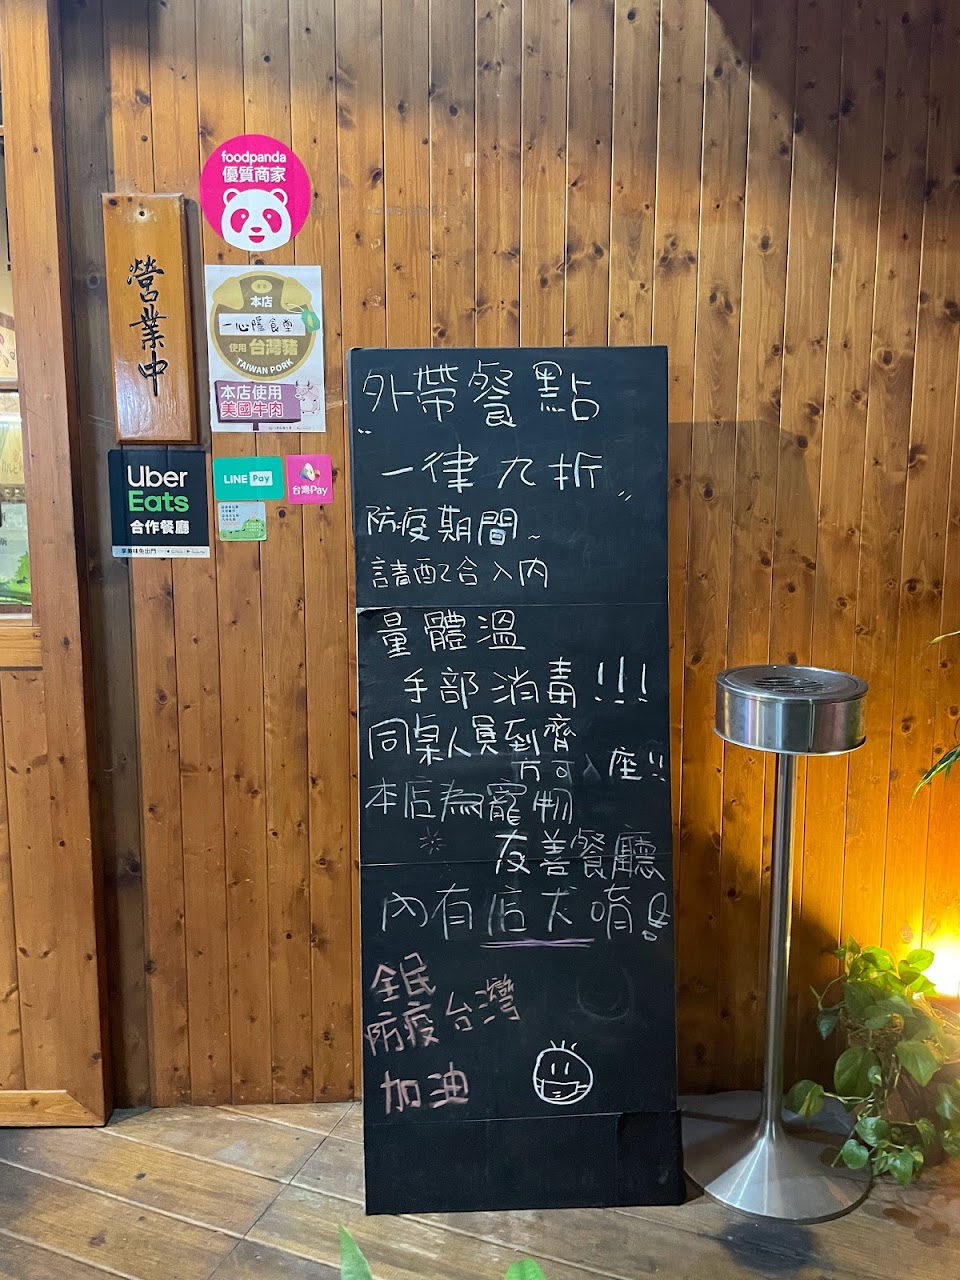 foodpanda
優質商家
營業中
本店
一心隱食堂
使用 台灣豬
TAIWAN PORK
本店使用
美國牛肉
Uber
Eats
合作餐廳
掌美味免出門
LINE Pay
台灣Pay
外帶餐點
一律九折
防疫期間~
請配合入內
量體溫
手部消毒!!!
同桌人員到齊
方可入座!!
本店為寵物
友善餐廳
內有店犬唷!
全民
防疫台灣
加油